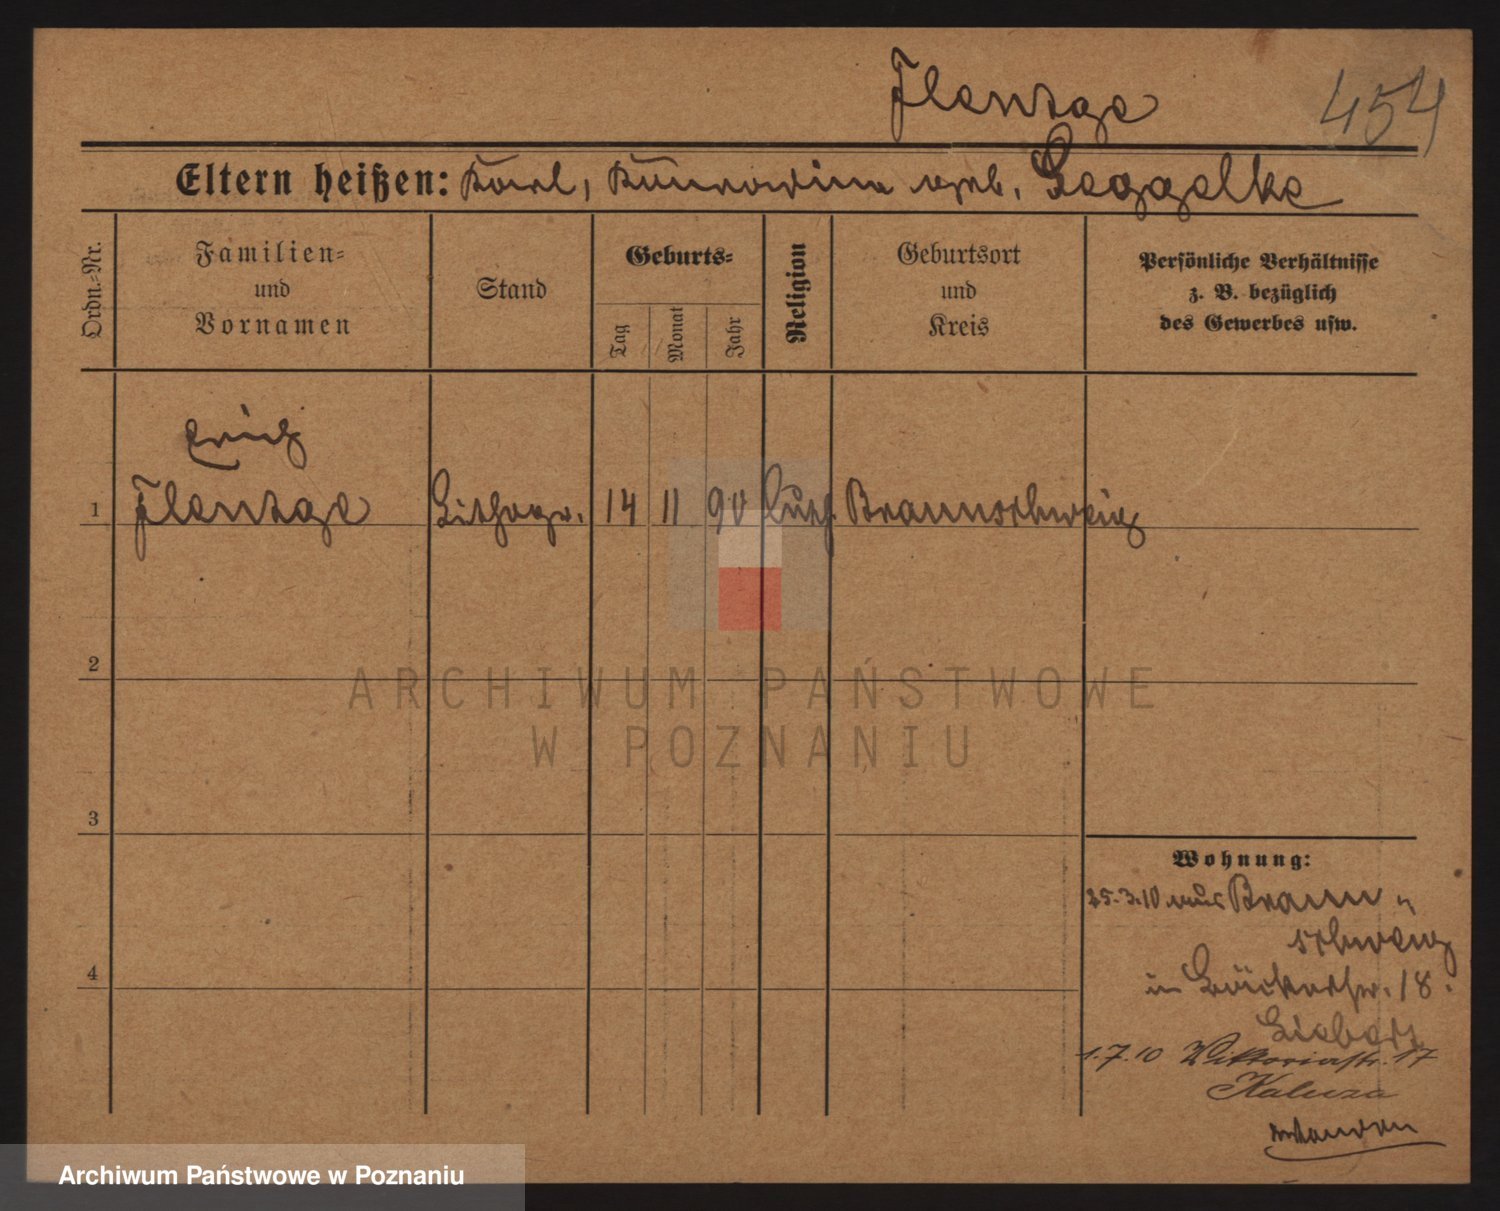 Flentge
454
Eltern heißen: Karl, Kunradine geb. Geggelke
Ordn.-Nr.
Familien-
und
Vornamen
Stand
Geburts-
Tag
Monat
Jahr
Religion
Geburtsort
und
Kreis
Persönliche Verhältnisse
z. B. bezüglich
des Gewerbes usw.
Erich
1 Flentge Lithogr. 14 11 90 luth. Braunschweig
2
3
4
Wohnung:
25.3.10 aus Braun-
schweig
in Bäckerstr. 18.
1.7.10 Viktoriastr. 17
Kaluza
ARCHIWUM PAŃSTWOWE
W POZNANIU
Archiwum Państwowe w Poznaniu